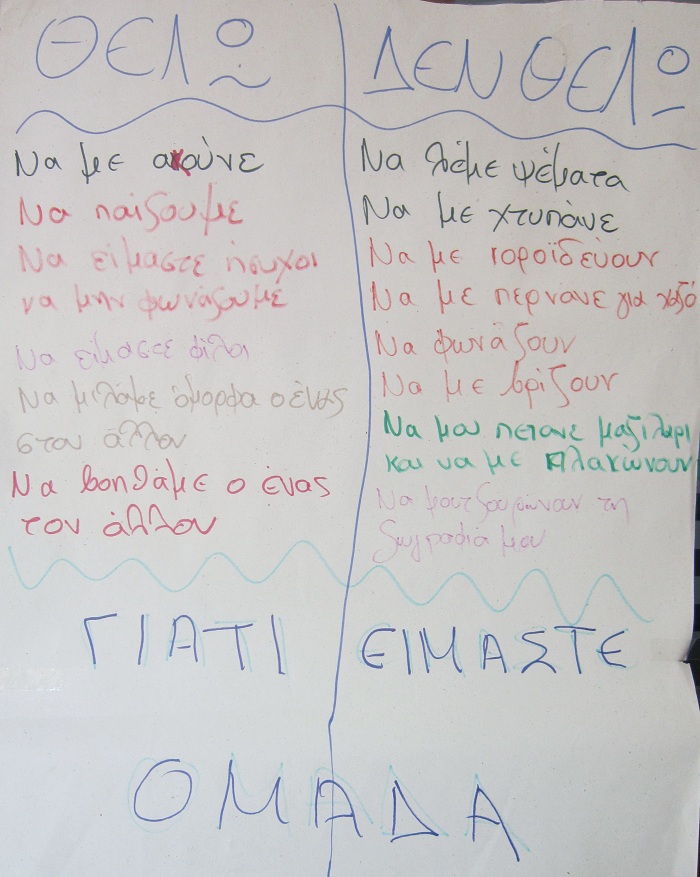 ΘΕΛΩ
Να με ακούνε
Να παίζουμε
Να είμαστε ήσυχοι
να μην φωνάζουμε
Να είμαστε φίλοι
Να μιλάμε όμορφα ο ένας
στον άλλον
Να βοηθάμε ο ένας
τον άλλον
ΔΕΝ ΘΕΛΩ
Να λέμε ψέματα
Να με χτυπάνε
Να με κοροϊδεύουν
Να με περνάνε για χαζό
Να φωνάζουν
Να με βρίζουν
Να μου πετάνε μαξιλάρι
και να με πλακώνουν
Να μουτζουρώνουν τη
ζωγραφιά μου
ΓΙΑΤΙ ΕΙΜΑΣΤΕ
ΟΜΑΔΑ